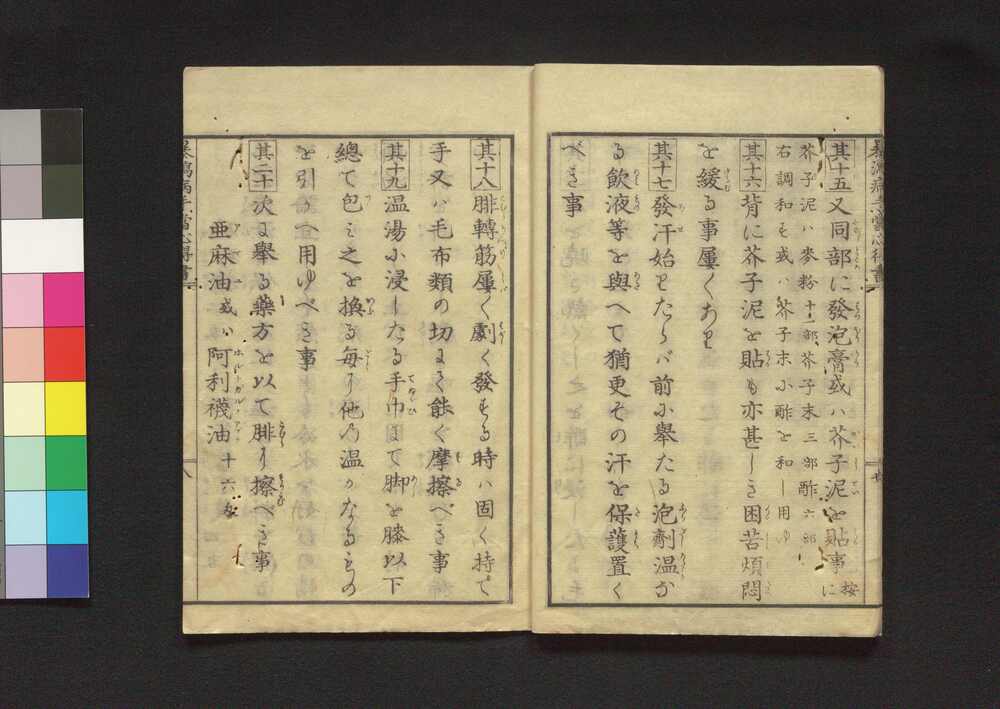 其十五又同部に發泡膏或ハ芥子泥を貼事 按に
芥子泥ハ麥粉十二部芥子末三部酢六部
右調和も或ハ芥子末小酢を和し用ゆ
其十六背に芥子泥を貼も亦甚しき困苦煩悶
を緩る事屢〻あり
其十七發汗始りたらバ前に舉たる泡劑温か
る飲液等を與へて猶更その汗を保護置く
べき事
其十八腓轉筋屢〻劇く發する時ハ固く持て
手又ハ毛布類の切にて能ぐ摩擦べき事
其十九温湯に浸したる手巾にて脚を膝以下
總て包み之を換る毎に他の温かなるもの
を引用ゆべき事
其二十次に舉る藥方を以て腓に擦べき事
亜麻油或ハ阿利襪油十六
暴瀉病手當心得書
八